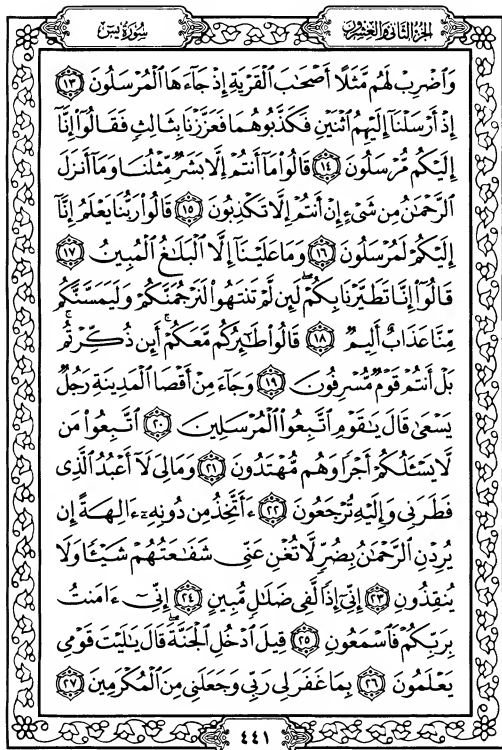 الجزء الثاني والعشرون
سورة يس
وَٱضۡرِبۡ لَهُم مَّثَلًا أَصۡحَٰبَ ٱلۡقَرۡيَةِ إِذۡ جَآءَهَا ٱلۡمُرۡسَلُونَ ١٣
إِذۡ أَرۡسَلۡنَآ إِلَيۡهِمُ ٱثۡنَيۡنِ فَكَذَّبُوهُمَا فَعَزَّزۡنَا بِثَالِثٖ فَقَالُوٓاْ إِنَّآ
إِلَيۡكُم مُّرۡسَلُونَ ١٤ قَالُواْ مَآ أَنتُمۡ إِلَّا بَشَرٞ مِّثۡلُنَا وَمَآ أَنزَلَ
ٱلرَّحۡمَٰنُ مِن شَيۡءٍ إِنۡ أَنتُمۡ إِلَّا تَكۡذِبُونَ ١٥ قَالُواْ رَبُّنَا يَعۡلَمُ إِنَّآ
إِلَيۡكُمۡ لَمُرۡسَلُونَ ١٦ وَمَا عَلَيۡنَآ إِلَّا ٱلۡبَلَٰغُ ٱلۡمُبِينُ ١٧
قَالُوٓاْ إِنَّا تَطَيَّرۡنَا بِكُمۡۖ لَئِن لَّمۡ تَنتَهُواْ لَنَرۡجُمَنَّكُمۡ وَلَيَمَسَّنَّكُم
مِّنَّا عَذَابٌ أَلِيمٞ ١٨ قَالُواْ طَٰٓئِرُكُم مَّعَكُمۡ أَئِن ذُكِّرۡتُمۚ
بَلۡ أَنتُمۡ قَوۡمٞ مُّسۡرِفُونَ ١٩ وَجَآءَ مِنۡ أَقۡصَا ٱلۡمَدِينَةِ رَجُلٞ
يَسۡعَىٰ قَالَ يَٰقَوۡمِ ٱتَّبِعُواْ ٱلۡمُرۡسَلِينَ ٢٠ ٱتَّبِعُواْ مَن
لَّا يَسۡـَٔلُكُمۡ أَجۡرٗا وَهُم مُّهۡتَدُونَ ٢١ وَمَالِيَ لَآ أَعۡبُدُ ٱلَّذِي
فَطَرَنِي وَإِلَيۡهِ تُرۡجَعُونَ ٢٢ ءَأَتَّخِذُ مِن دُونِهِۦٓ ءَالِهَةً إِن
يُرِدۡنِ ٱلرَّحۡمَٰنُ بِضُرّٖ لَّا تُغۡنِ عَنِّي شَفَٰعَتُهُمۡ شَيۡـٔٗا وَلَا
يُنقِذُونِ ٢٣ إِنِّيٓ إِذٗا لَّفِي ضَلَٰلٖ مُّبِينٍ ٢٤ إِنِّيٓ ءَامَنتُ
بِرَبِّكُمۡ فَٱسۡمَعُونِ ٢٥ قِيلَ ٱدۡخُلِ ٱلۡجَنَّةَۖ قَالَ يَٰلَيۡتَ قَوۡمِي
يَعۡلَمُونَ ٢٦ بِمَا غَفَرَ لِي رَبِّي وَجَعَلَنِي مِنَ ٱلۡمُكۡرَمِينَ ٢٧
٤٤١